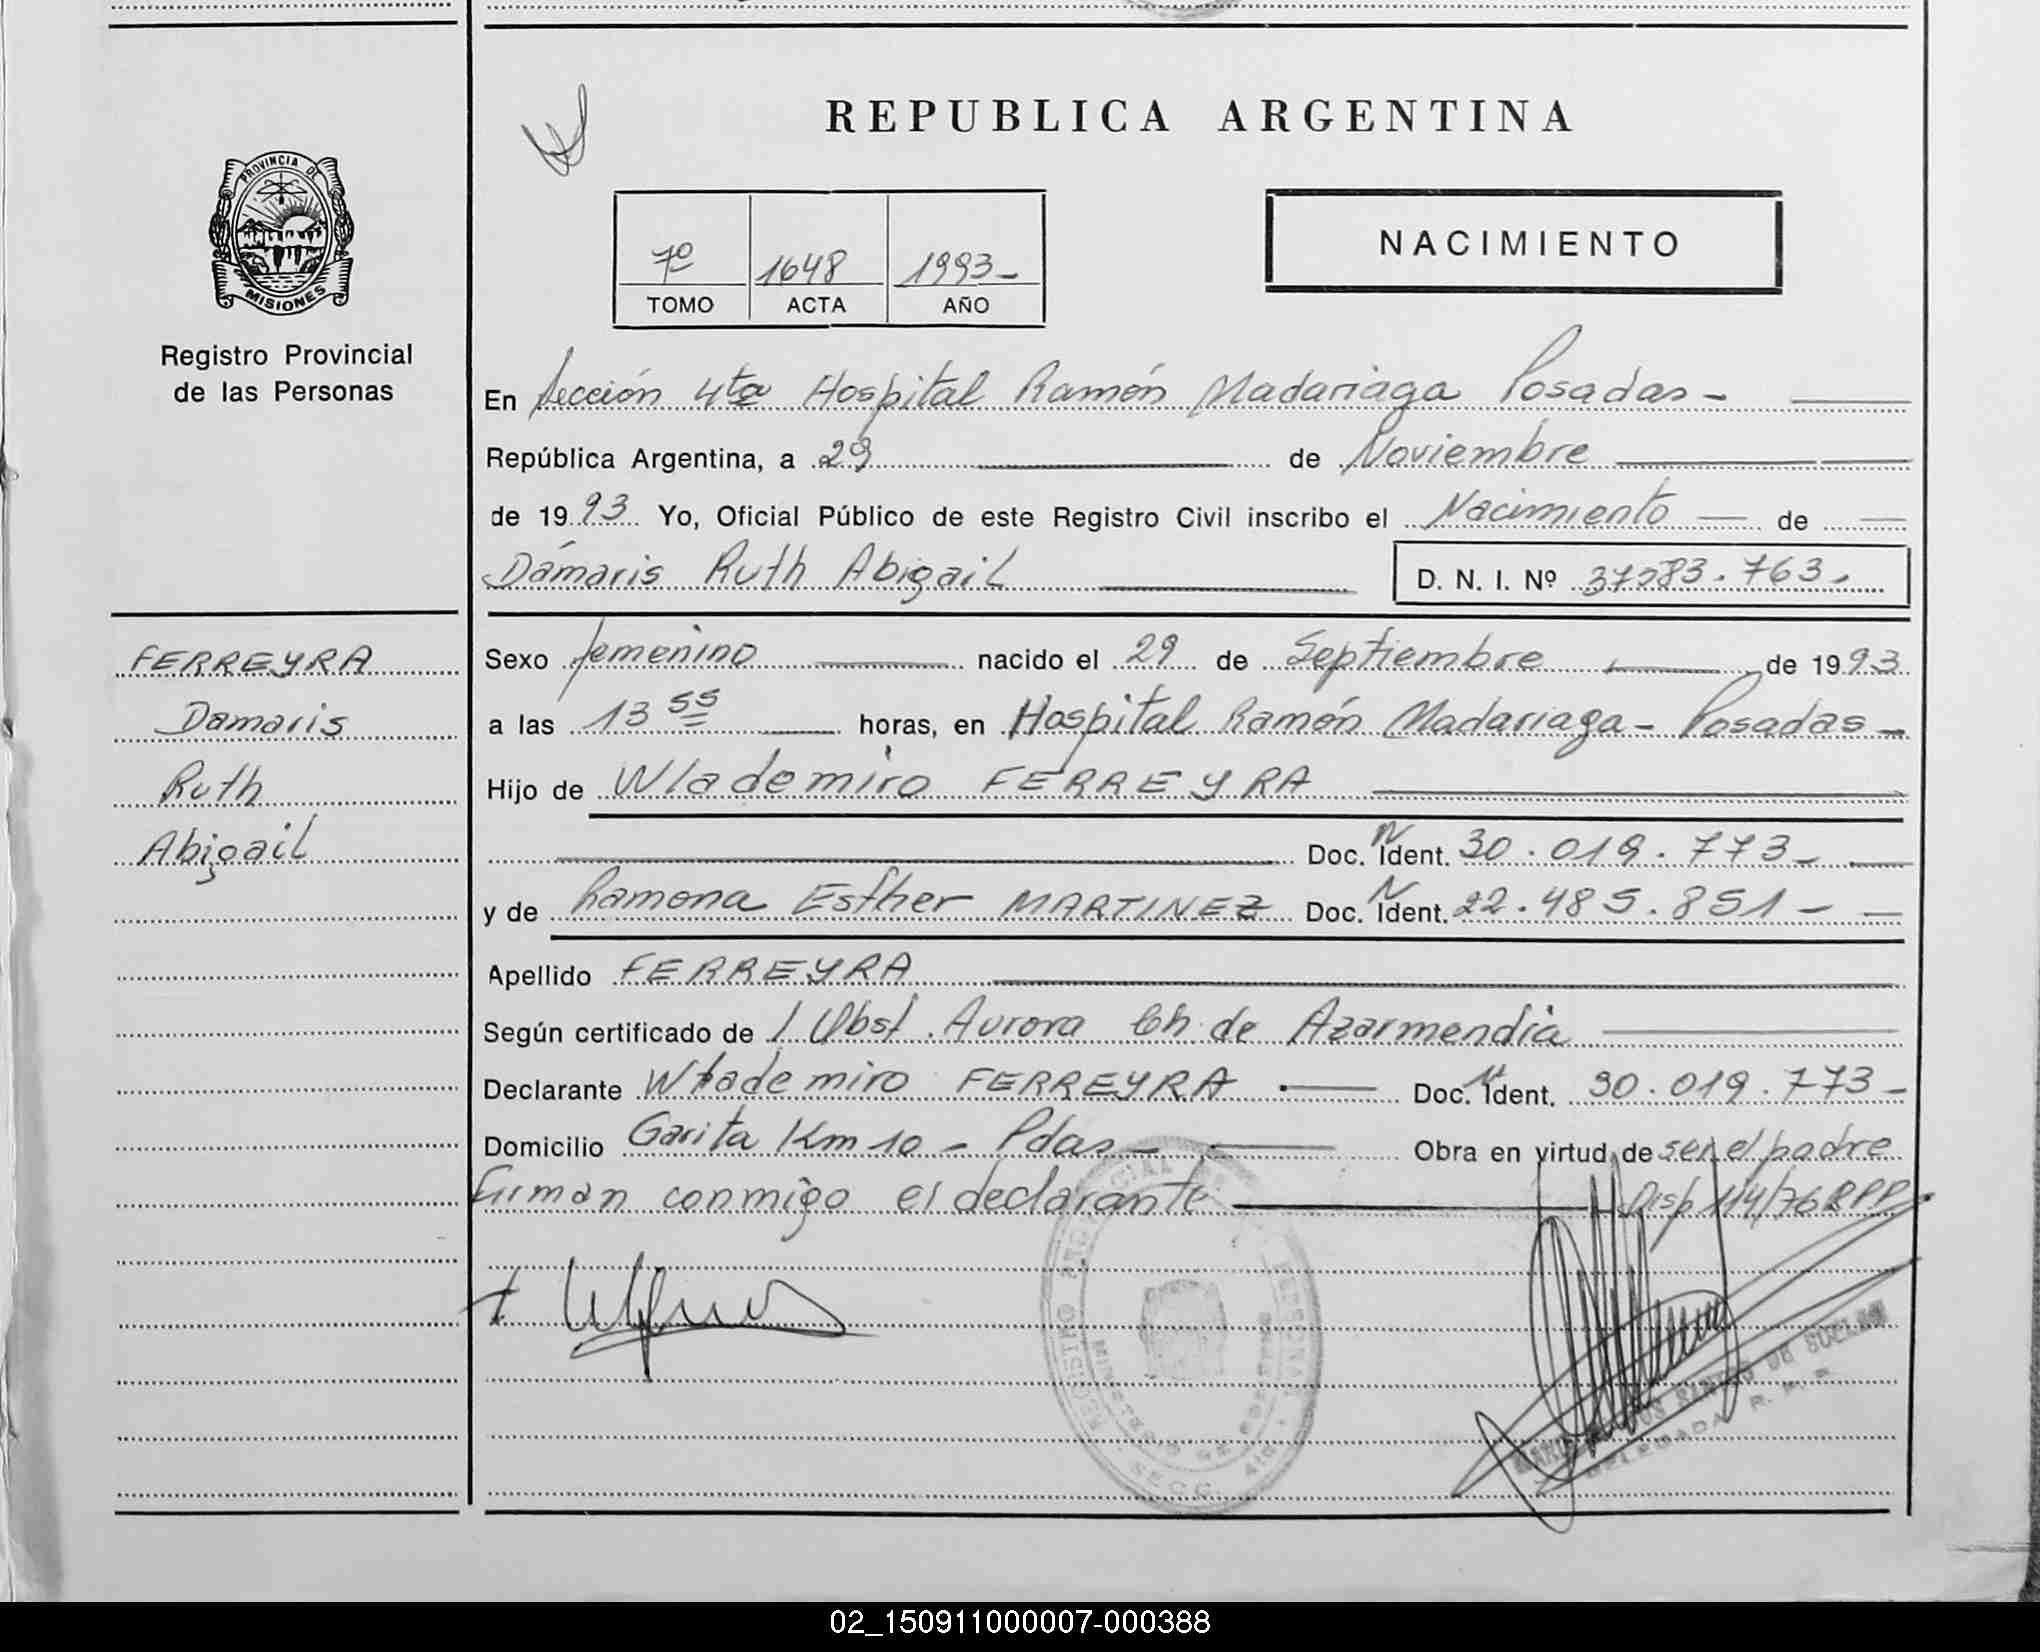 REPUBLICA ARGENTINA
PROVINCIA DE
MISIONES
Registro Provincial
de las Personas
7º 1648 1993-
TOMO ACTA AÑO
NACIMIENTO
En Sección 4ta Hospital Ramón Madariaga Posadas-
República Argentina, a 29 de Noviembre
de 1993 Yo, Oficial Público de este Registro Civil inscribo el Nacimiento de
Dámaris Ruth Abigail D. N. I. Nº 37283.763-
FERREYRA
Damaris
Ruth
Abigail
Sexo femenino nacido el 29 de Septiembre de 1993
a las 13 55 horas, en Hospital Ramón Madariaga - Posadas-
Hijo de Wlademiro FERREYRA
Doc. N Ident. 30.019.773-
y de Ramona Esther MARTINEZ Doc. N Ident. 22.485.851-
Apellido FERREYRA
Según certificado de Obst. Aurora Ch. de Azarmendia
Declarante Wlademiro FERREYRA Doc. N Ident. 30.019.773-
Domicilio Garita Km 10 - Pdas- Obra en virtud de ser el padre
Firman conmigo el declarante Disp 114/76 RPP.
REGISTRO
MINISTERIO DE GOBIERNO
DELEGADA R. P. P.
02_150911000007-000388